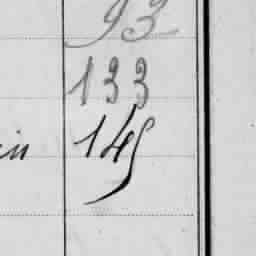 93
133
in 145